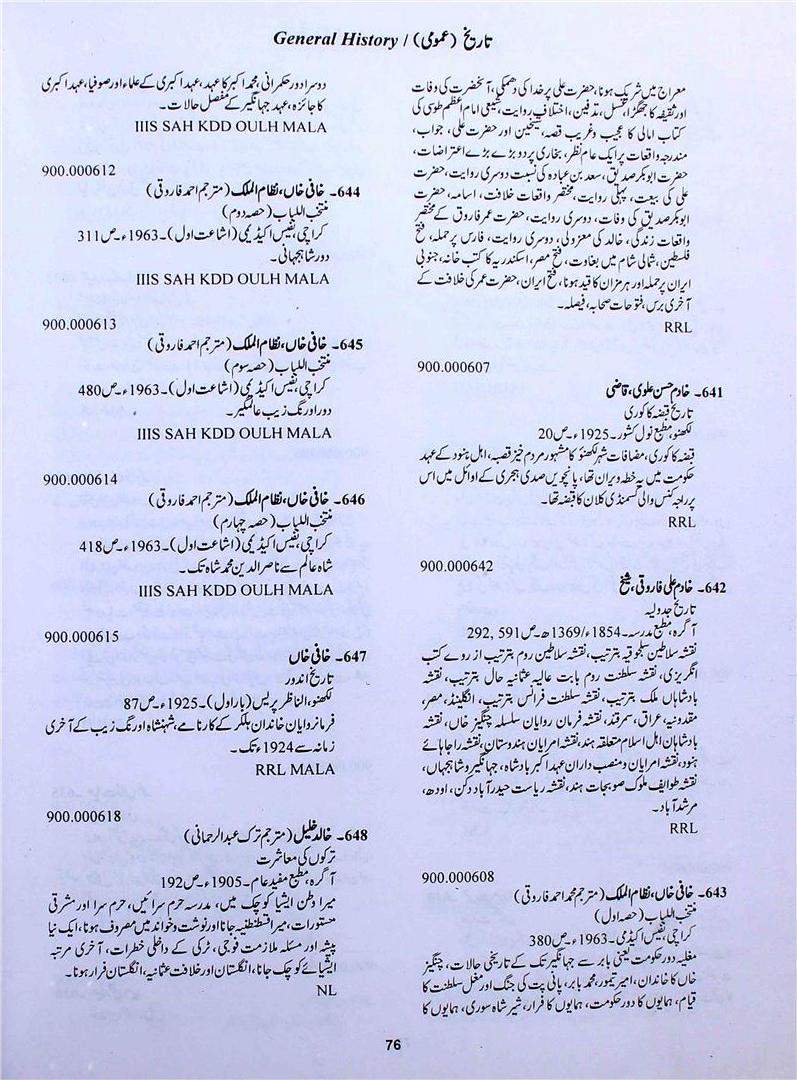 General History / تاریخ (عمومی)
معراج میں شریک ہونا، حضرت علی پر خدا کی دھمکی، آنحضرت کی وفات
اور ثقیفہ کا جھگڑا، غسل، تدفین، اختلافِ روایت، شیعی امام اعظم طوسی کی
کتاب امالی کا عجیب و غریب قصہ، شیخین اور حضرت علی، جواب،
مندرجہ واقعات پر ایک عام نظر، بخاری پر دو بڑے بڑے اعتراضات،
حضرت ابوبکر صدیق، سعد بن عبادہ کی نسبت دوسری روایت، حضرت
علی کی بیعت، پہلی روایت، مختصر واقعات خلافت، اسامہ، حضرت
ابوبکر صدیق کی وفات، دوسری روایت، حضرت عمر فاروق کے مختصر
واقعات زندگی، خالد کی معزولی، دوسری روایت، فارس پر حملہ، فتح
فلسطین، شمالی شام میں بغاوت، فتح مصر، اسکندریہ کا کتب خانہ، جنوبی
ایران پر حملہ اور ہرمزان کا قید ہونا، فتح ایران، حضرت عمر کی خلافت کے
آخری برس، فتوحات صحابہ، فیصلہ۔
RRL
900.000607
641۔ خادم حسن علوی، قاضی
تاریخ قصبہ کاکوری
لکھنو، مطبع نول کشور۔ 1925ء۔ ص20
قصبہ کاکوری، مضافات شہر لکھنؤ کا مشہور مردم خیز قصبہ، اہل ہنود کے عہد
حکومت میں یہ خطہ ویران تھا، پانچویں صدی ہجری کے اوائل میں اس
پر راجہ کنس والی کسمنڈی کلان کا قبضہ تھا۔
RRL
900.000642
642۔ خادم علی فاروقی، شیخ
تاریخ جدولیہ
آگرہ، مطبع مدرسہ۔ 1854ء/1369ھ۔ ص591 ,292
نقشہ سلاطین سلجوقیہ بترتیب، نقشہ سلاطین روم بترتیب از روے کتب
انگریزی، نقشہ سلطنت روم بابت عالیہ عثمانیہ حال بترتیب، نقشہ
بادشاہاں ملک بترتیب، نقشہ سلطنت فرانس بترتیب، انگلینڈ، مصر،
مقدونیہ، عراق، سمرقند، نقشہ فرمان روایان سلسلہ چنگیز خاں، نقشہ
بادشاہان اہل اسلام متعلقہ ہند، نقشہ امرایان ہندوستان، نقشہ راجاہائے
ہنود، نقشہ امرایان و منصب داران عہد اکبر بادشاہ، جہانگیر و شاہجہاں،
نقشہ طوایف ملوک صوبجات ہند، نقشہ ریاست حیدرآباد دکن، اودھ،
مرشدآباد۔
RRL
900.000608
643۔ خافی خاں، نظام الملک (مترجم محمد احمد فاروقی)
منتخب اللباب (حصہ اول)
کراچی، نفیس اکیڈمی۔ 1963ء۔ ص380
مغلیہ دور حکومت یعنی بابر سے جہانگیر تک کے تاریخی حالات، چنگیز
خاں کا خاندان، امیر تیمور، محمد بابر، پانی پت کی جنگ اور مغل سلطنت کا
قیام، ہمایوں کا دور حکومت، ہمایوں کا فرار، شیر شاہ سوری، ہمایوں کا
دوسرا دور حکمرانی، محمد اکبر کا عہد، عہد اکبری کے علماء اور صوفیا، عہد اکبری
کا جائزہ، عہد جہانگیر کے مفصل حالات۔
IIIS SAH KDD OULH MALA
900.000612
644۔ خافی خاں، نظام الملک (مترجم احمد فاروقی)
منتخب اللباب (حصہ دوم)
کراچی، نفیس اکیڈیمی (اشاعت اول)۔ 1963ء۔ ص311
دور شاہجہانی۔
IIIS SAH KDD OULH MALA
900.000613
645۔ خافی خاں، نظام الملک (مترجم احمد فاروقی)
منتخب اللباب (حصہ سوم)
کراچی، نفیس اکیڈیمی (اشاعت اول)۔ 1963ء۔ ص480
دور اورنگ زیب عالمگیر۔
IIIS SAH KDD OULH MALA
900.000614
646۔ خافی خاں، نظام الملک (مترجم احمد فاروقی)
منتخب اللباب (حصہ چہارم)
کراچی، نفیس اکیڈیمی (اشاعت اول)۔ 1963ء۔ ص418
شاہ عالم سے ناصر الدین محمد شاہ تک۔
IIIS SAH KDD OULH MALA
900.000615
647۔ خافی خاں
تاریخ اندور
لکھنو، الناظر پریس (بار اول)۔ 1925ء۔ ص87
فرمانروایان خاندان ہلکر کے کارنامے، شہنشاہ اورنگ زیب کے آخری
زمانہ سے 1924ء تک۔
RRL MALA
900.000618
648۔ خالد خلیل (مترجم ترک عبدالرحمانی)
ترکوں کی معاشرت
آگرہ، مطبع مفید عام۔ 1905ء۔ ص192
میرا وطن ایشیا کوچک میں، مدرسہ حرم سرائیں، حرم سرا اور مشرقی
مستورات، میرا قسطنطنیہ جانا اور نوشت و خواند میں مصروف ہونا، ایک نیا
پیشہ اور مسئلہ ملازمت فوجی، ٹرکی کے داخلی خطرات، آخری مرتبہ
ایشیائے کوچک جانا، انگلستان اور خلافت عثمانیہ، انگلستان فرار ہونا۔
NL
76